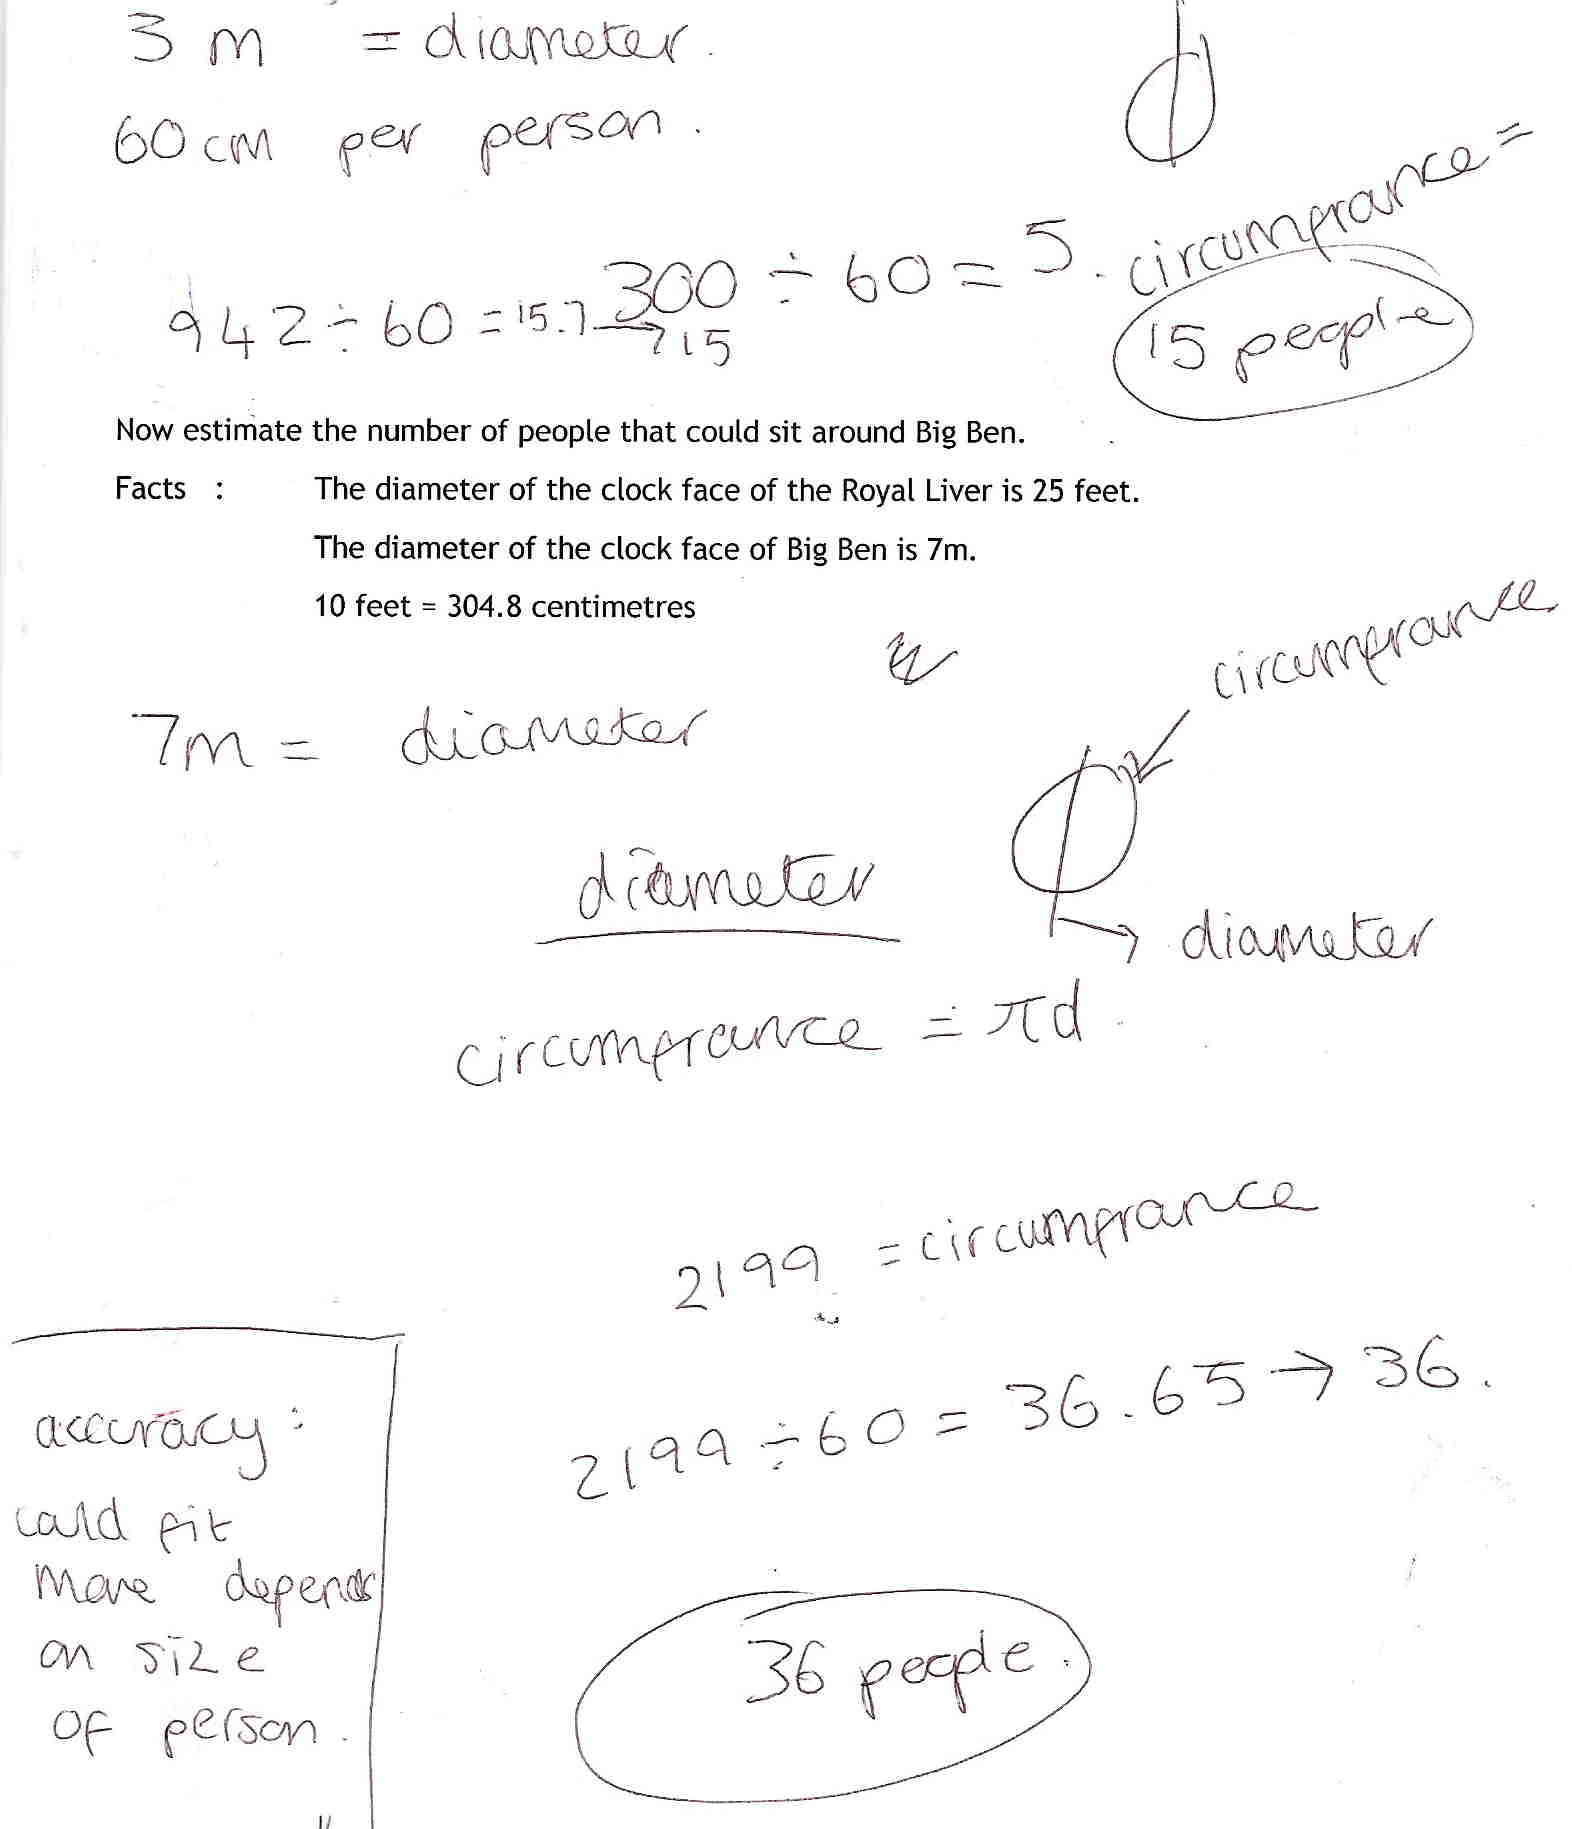 3 m = diameter.
60cm per person.
300 ÷ 60 = 5.
circumfrance =
942 ÷ 60 = 15.7 → 15
15 people
Now estimate the number of people that could sit around Big Ben.
Facts : The diameter of the clock face of the Royal Liver is 25 feet.
The diameter of the clock face of Big Ben is 7m.
10 feet = 304.8 centimetres
circumfrance
7m = diameter
diameter
diameter
circumfrance = πd
2199 = circumfrance
2199 ÷ 60 = 36.65 → 36.
accuracy:
could fit
more depends
on size
of person.
36 people.